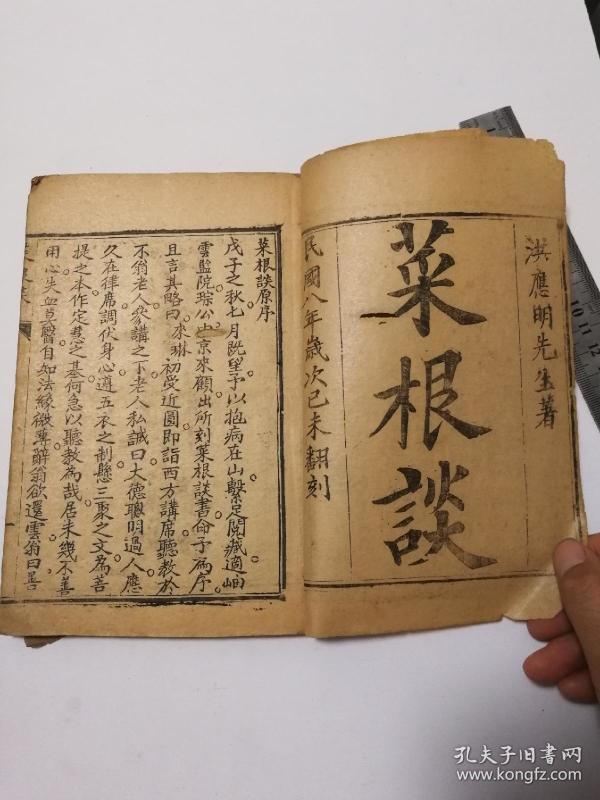 洪應明先生著
菜根談
民國八年歲次己未翻刻
菜根談原序
戊子之秋七月既望予以抱病在山繫足閱藏適岫
雲監院琮公由京來顧出所刻菜根談書命予為序
且言其略曰來琳初受近圓即詣西方講席聽教於
不翁老人參講之下老人私誡曰大德聰明過人應
久在律席調伏身心遵五衣之制懸三聚之文為菩
提之本作定慧之基何急以聽教為哉居未幾不善
用心失血莫醫自如法緣微薄辭翁欲還雲翁曰善
10 11 12
孔夫子旧书网
www.kongfz.com